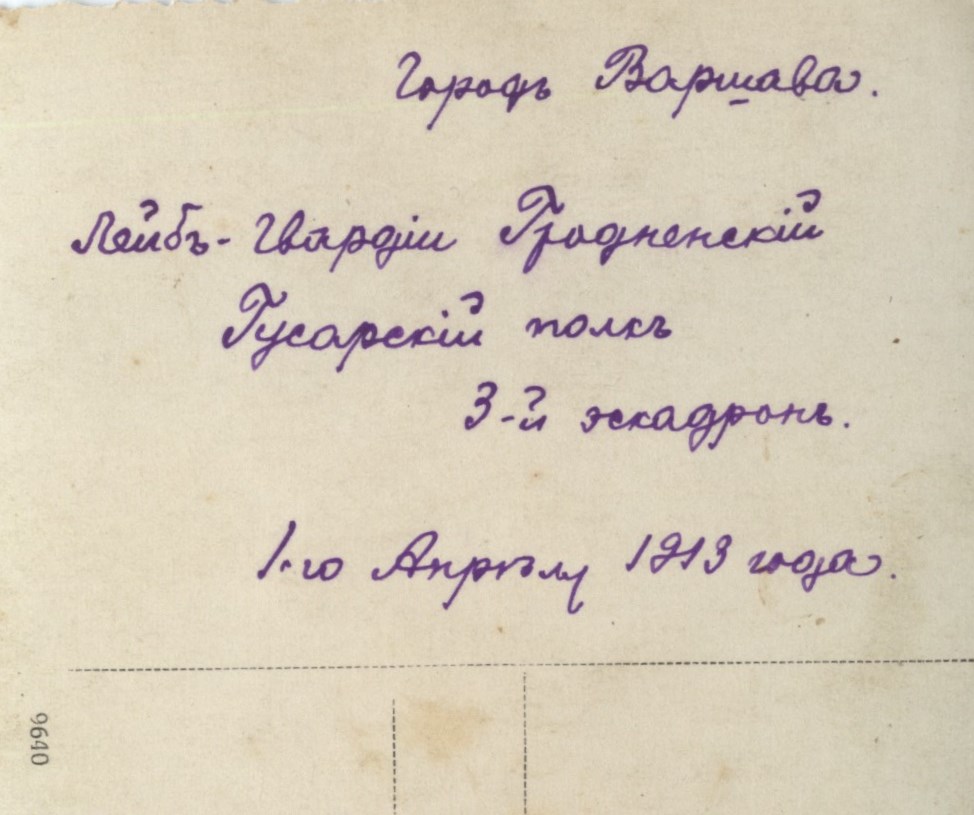 Городъ Варшава.
Лейбъ-Гвардіи Гродненскій
Гусарскій полкъ
3-й эскадронъ.
1-го Апрѣля 1913 года.
9640